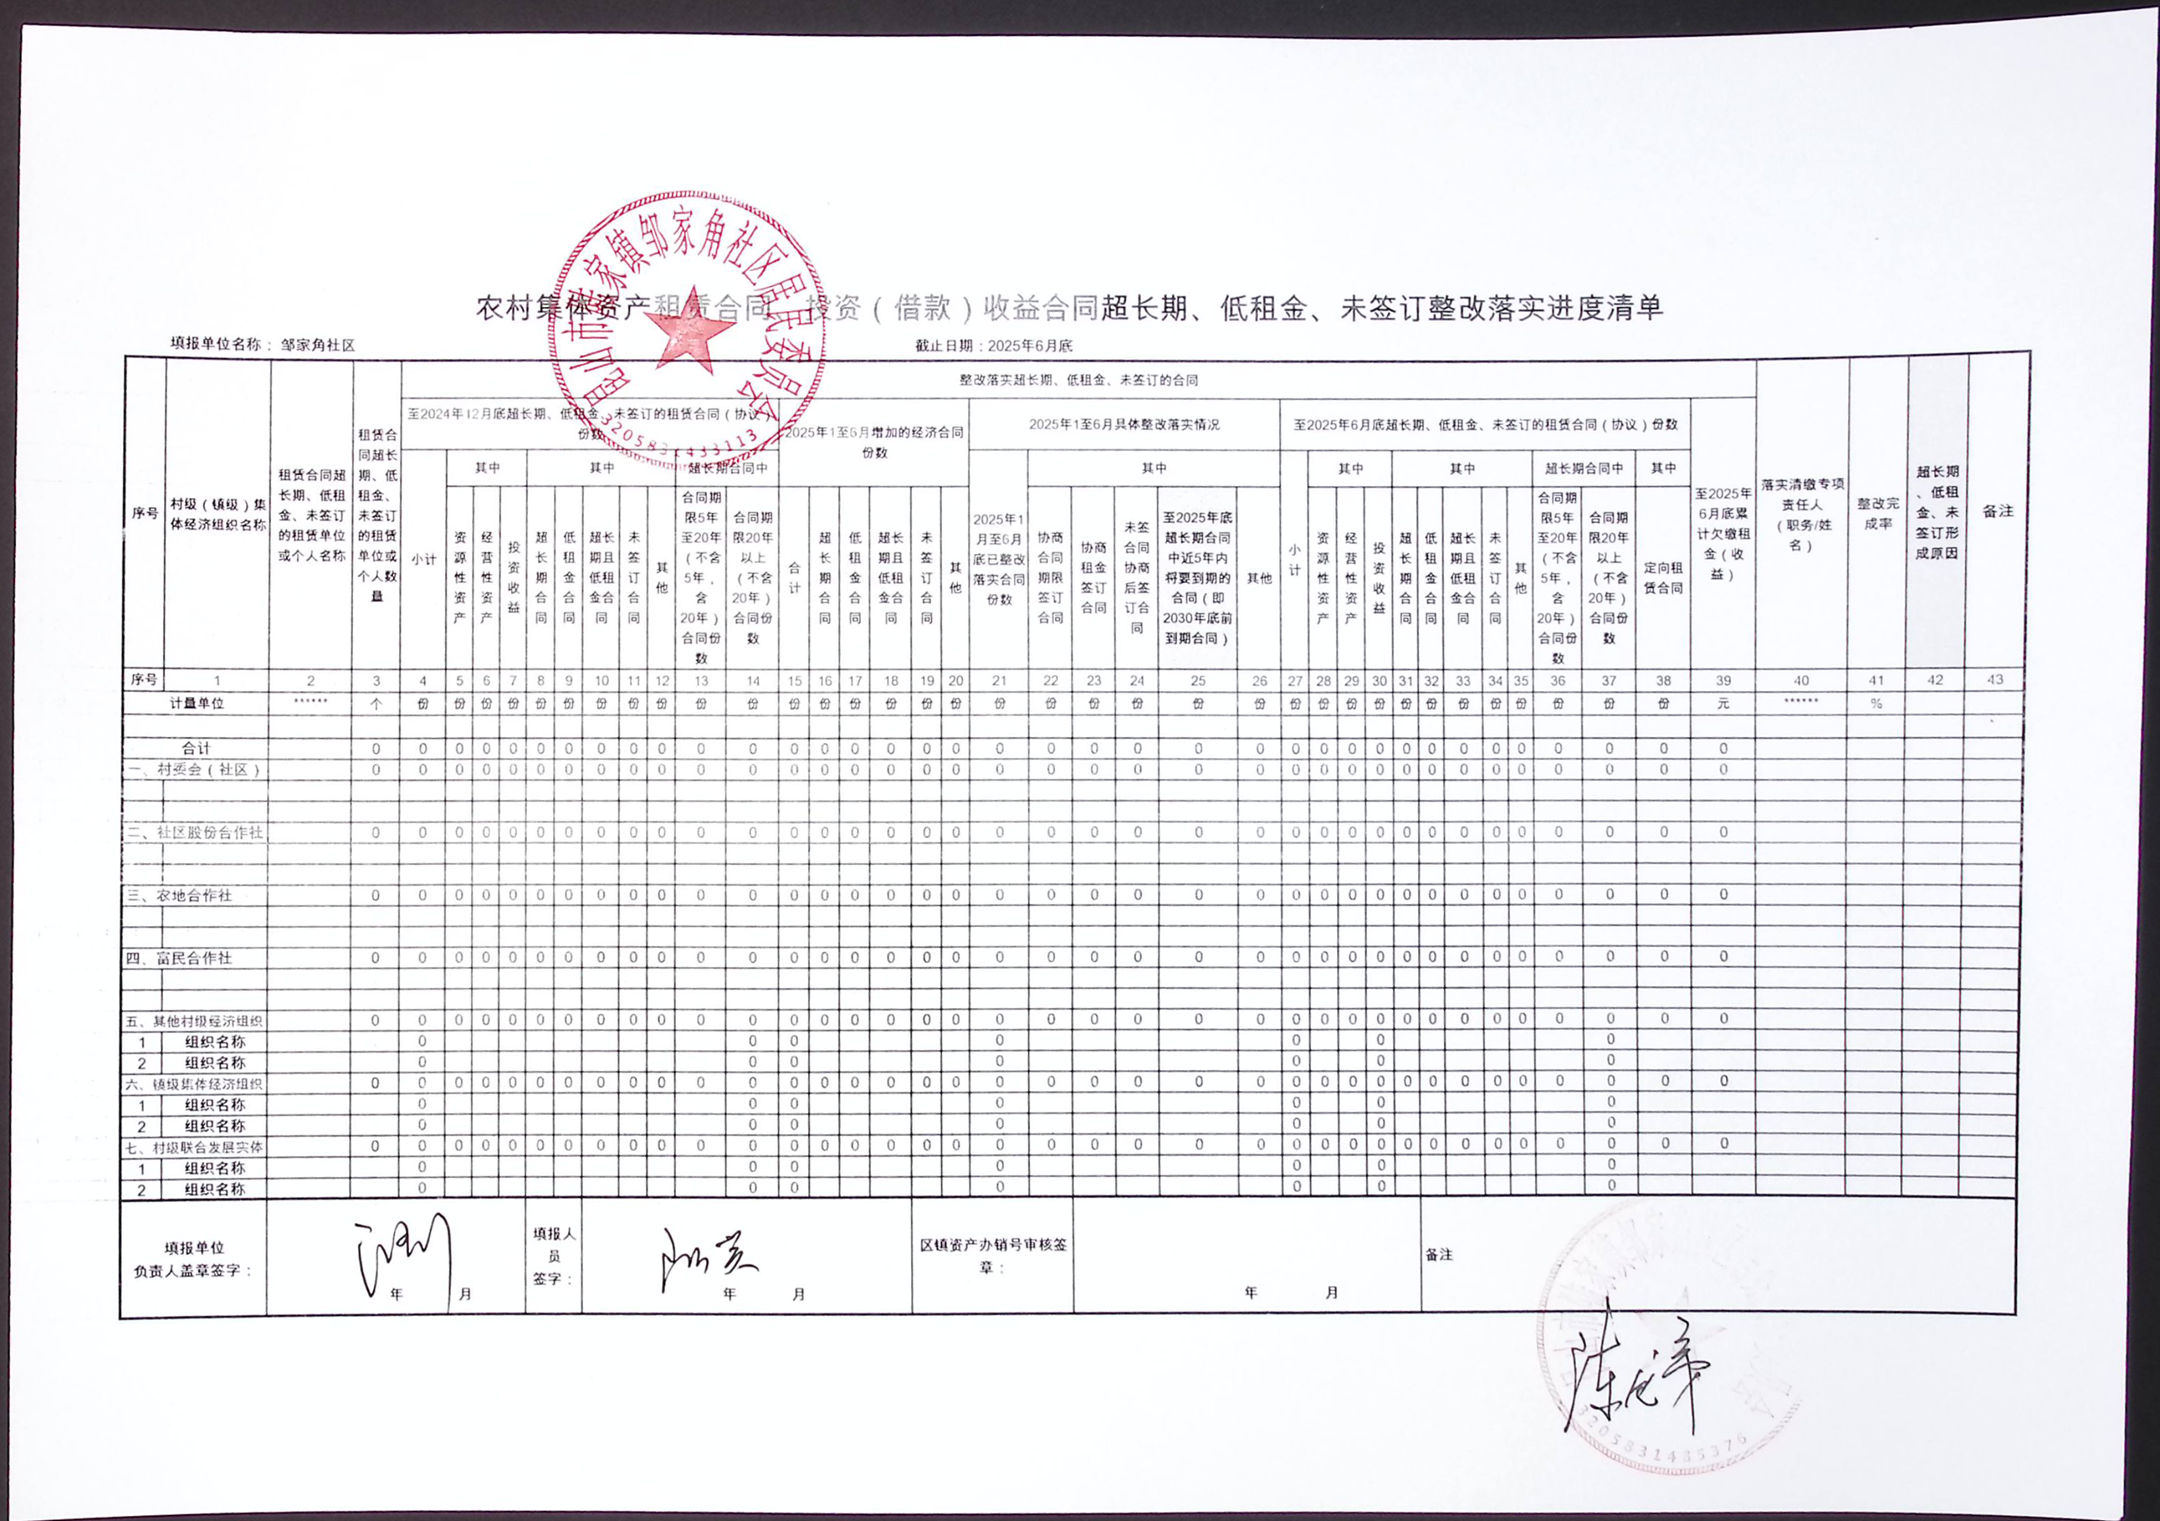 农村集体资产租赁合同、投资（借款）收益合同超长期、低租金、未签订整改落实进度清单
填报单位名称：邹家角社区 截止日期：2025年6月底
序号 村级（镇级）集体经济组织名称 租赁合同超长期、低租金、未签订的租赁单位或个人名称 租赁合同超长期、低租金、未签订的租赁单位或个人数量 整改落实超长期、低租金、未签订的合同 落实清缴专项责任人（职务/姓名） 整改完成率 超长期、低租金、未签订形成原因 备注
至2024年12月底超长期、低租金、未签订的租赁合同（协议）份数 2025年1至6月增加的经济合同份数 2025年1至6月具体整改落实情况 至2025年6月底超长期、低租金、未签订的租赁合同（协议）份数 至2025年6月底累计欠缴租金（收益）
小计 其中 其中 超长期合同中 其中 小计 其中 其中 超长期合同中 其中
资源性资产 经营性资产 投资收益 超长期合同 低租金合同 超长期且低租金合同 未签订合同 其他 合同期限5年至20年（不含5年，含20年）合同份数 合同期限20年以上（不含20年）合同份数 合计 超长期合同 低租金合同 超长期且低租金合同 未签订合同 其他 2025年1月至6月底已整改落实合同份数 协商合同期限签订合同 协商租金签订合同 未签合同协商后签订合同 至2025年底超长期合同中近5年内将要到期的合同（即2030年底前到期合同） 其他 资源性资产 经营性资产 投资收益 超长期合同 低租金合同 超长期且低租金合同 未签订合同 其他 合同期限5年至20年（不含5年，含20年）合同份数 合同期限20年以上（不含20年）合同份数 定向租赁合同
序号 1 2 3 4 5 6 7 8 9 10 11 12 13 14 15 16 17 18 19 20 21 22 23 24 25 26 27 28 29 30 31 32 33 34 35 36 37 38 39 40 41 42 43
计量单位 ****** 个 份 份 份 份 份 份 份 份 份 份 份 份 份 份 份 份 份 份 份 份 份 份 份 份 份 份 份 份 份 份 份 份 份 份 份 元 ****** %
合计 0 0 0 0 0 0 0 0 0 0 0 0 0 0 0 0 0 0 0 0 0 0 0 0 0 0 0 0 0 0 0 0 0 0 0 0 0
一、村委会（社区） 0 0 0 0 0 0 0 0 0 0 0 0 0 0 0 0 0 0 0 0 0 0 0 0 0 0 0 0 0 0 0 0 0 0 0 0 0
二、社区股份合作社 0 0 0 0 0 0 0 0 0 0 0 0 0 0 0 0 0 0 0 0 0 0 0 0 0 0 0 0 0 0 0 0 0 0 0 0 0
三、农地合作社 0 0 0 0 0 0 0 0 0 0 0 0 0 0 0 0 0 0 0 0 0 0 0 0 0 0 0 0 0 0 0 0 0 0 0 0 0
四、富民合作社 0 0 0 0 0 0 0 0 0 0 0 0 0 0 0 0 0 0 0 0 0 0 0 0 0 0 0 0 0 0 0 0 0 0 0 0 0
五、其他村级经济组织 0 0 0 0 0 0 0 0 0 0 0 0 0 0 0 0 0 0 0 0 0 0 0 0 0 0 0 0 0 0 0 0 0 0 0 0 0
1 组织名称 0 0 0 0 0 0 0
2 组织名称 0 0 0 0 0 0 0
六、镇级集体经济组织 0 0 0 0 0 0 0 0 0 0 0 0 0 0 0 0 0 0 0 0 0 0 0 0 0 0 0 0 0 0 0 0 0 0 0 0 0
1 组织名称 0 0 0 0 0 0 0
2 组织名称 0 0 0 0 0 0 0
七、村级联合发展实体 0 0 0 0 0 0 0 0 0 0 0 0 0 0 0 0 0 0 0 0 0 0 0 0 0 0 0 0 0 0 0 0 0 0 0 0 0
1 组织名称 0 0 0 0 0 0 0
2 组织名称 0 0 0 0 0 0 0
填报单位
负责人盖章签字： 年 月 填报人员签字： 年 月 区镇资产办销号审核签章： 年 月 备注
昆山市陆家镇邹家角社区居民委员会
3205831433113
3205831435376